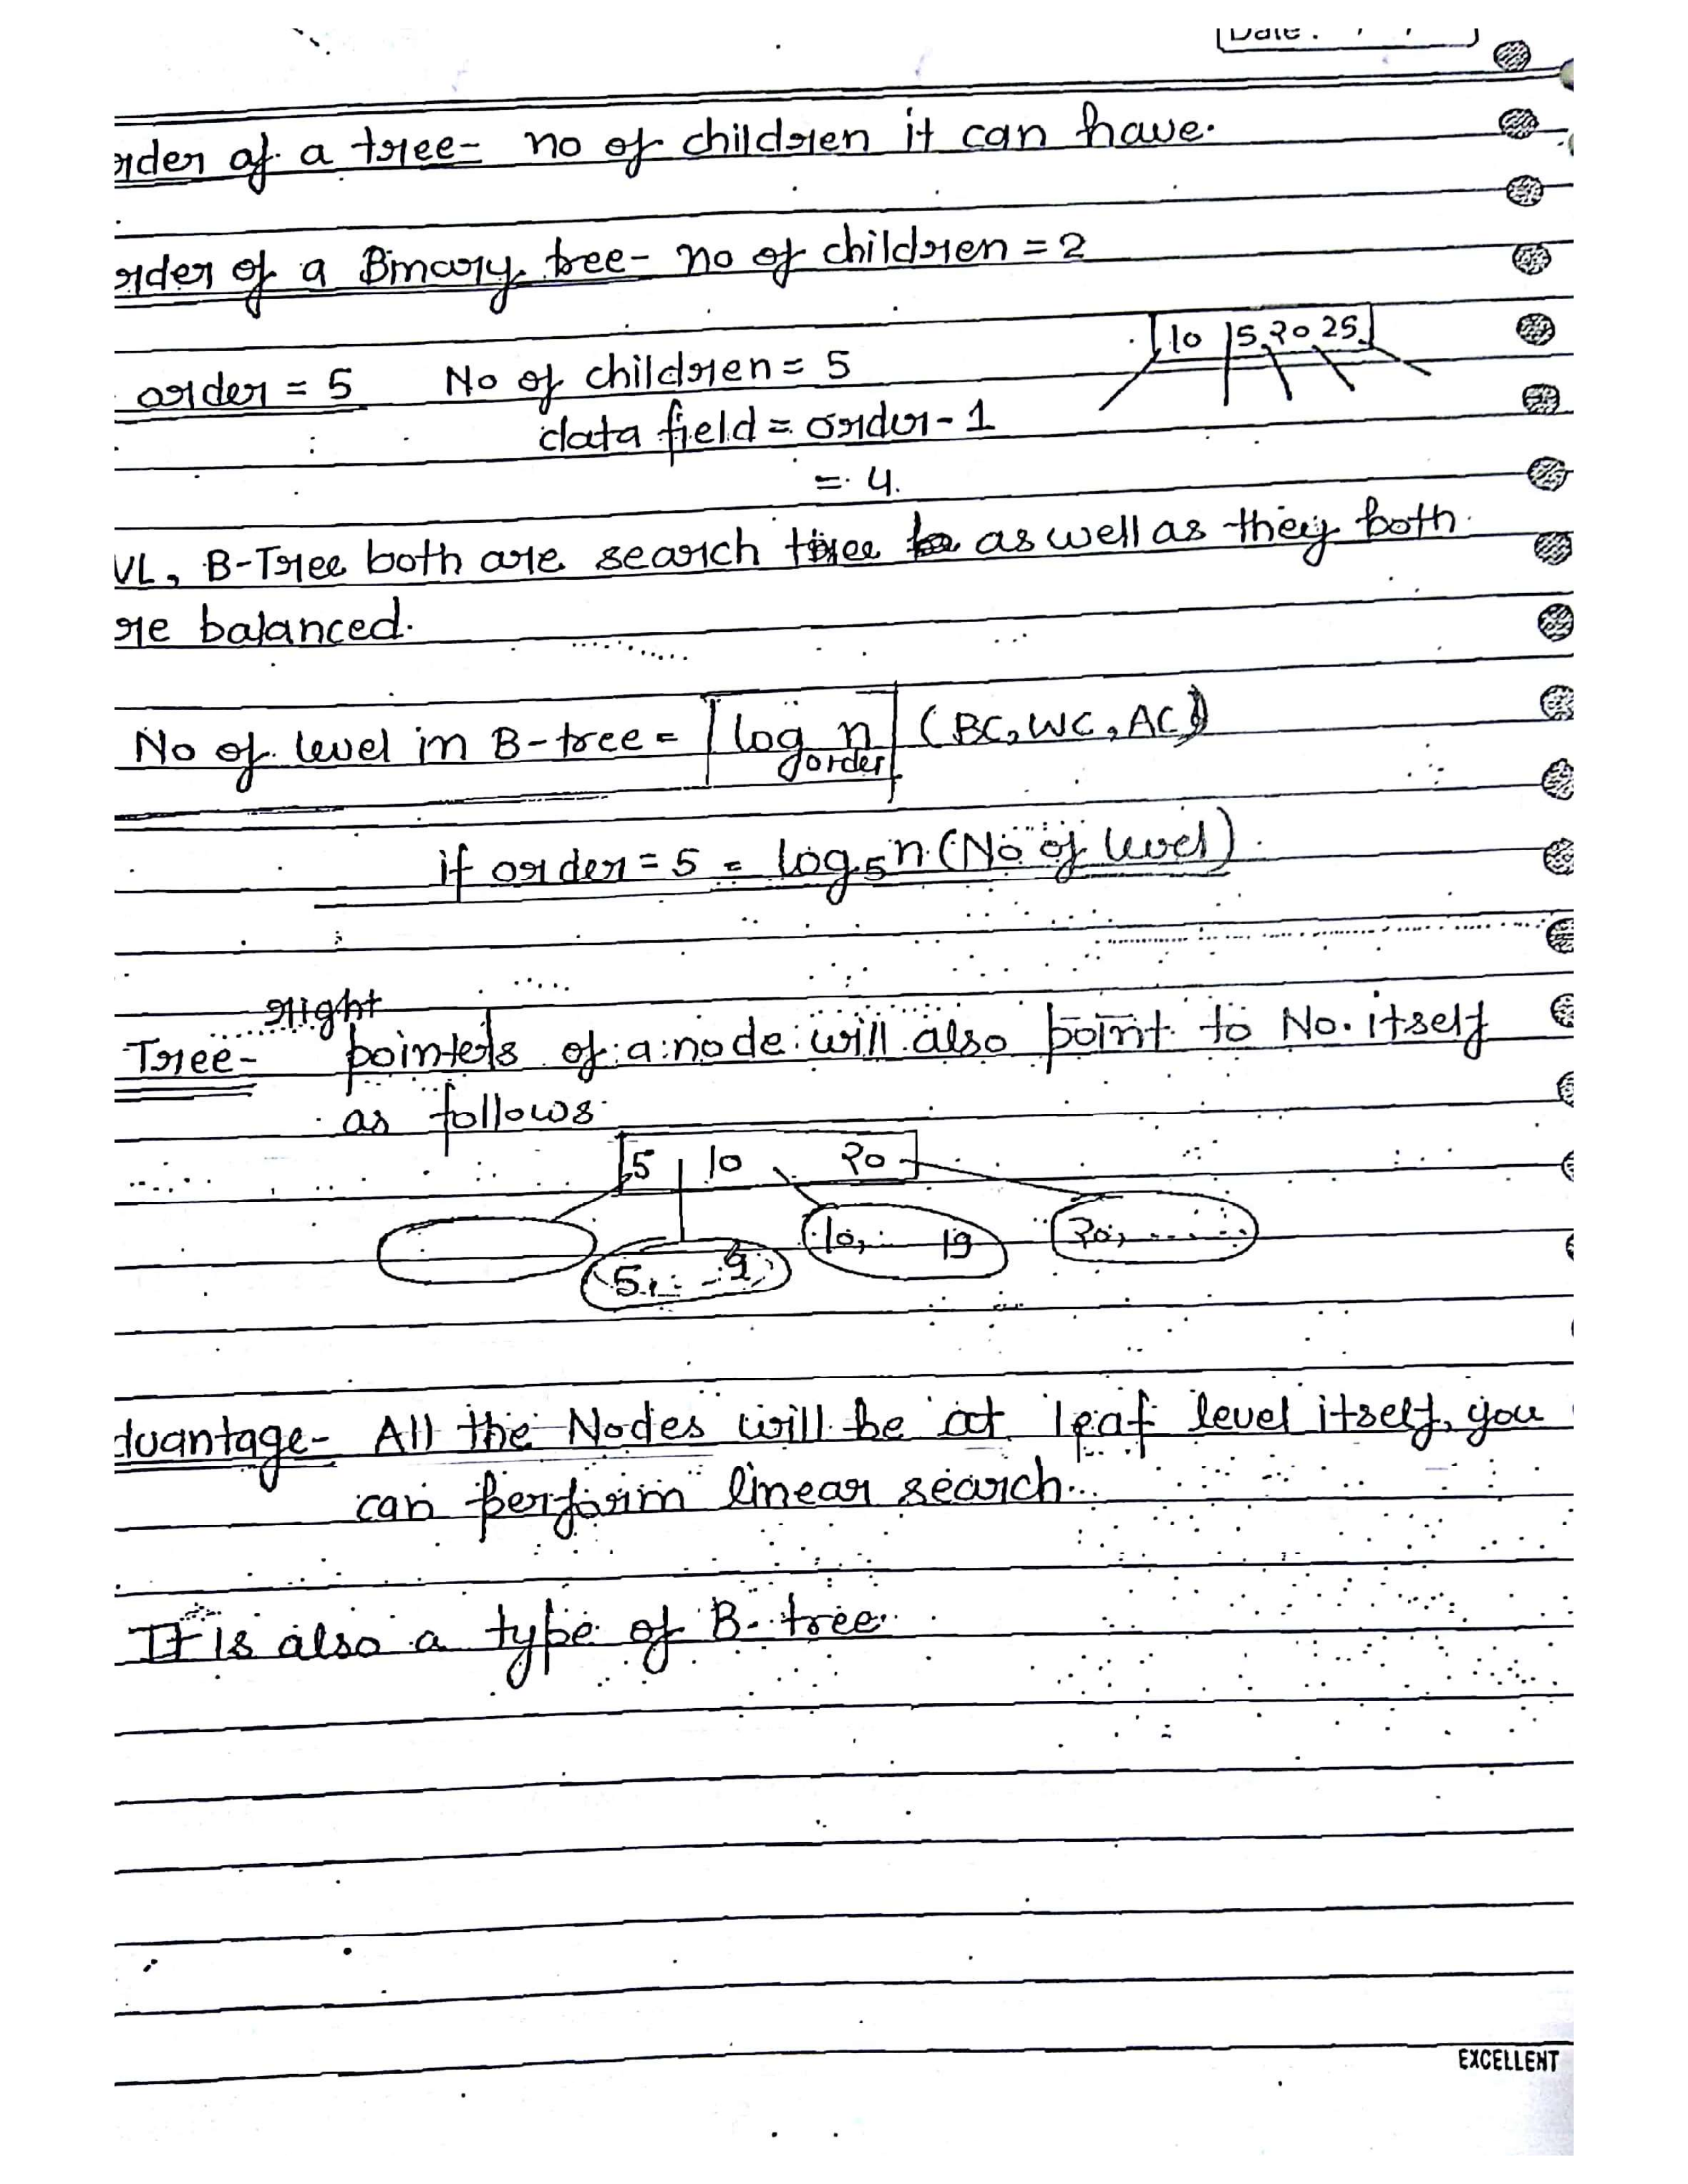 Date :
rder of a tree- no of children it can have.
rder of a Binary tree- no of children = 2
order = 5 No of children = 5
10 15 20 25
data field = order - 1
= 4.
VL, B-Tree both are search tree as well as they both
re balanced.
No of level in B-tree = log n order (BC, WC, AC)
if order = 5 = log5 n (No of level)
right
Tree- pointers of a node will also point to No. itself
as follows
5 10 20
5, .. - 9 10, 19 20, .....
dvantage- All the Nodes will be at leaf level itself, you
can perform linear search..
It is also a type of B-tree
EXCELLENT